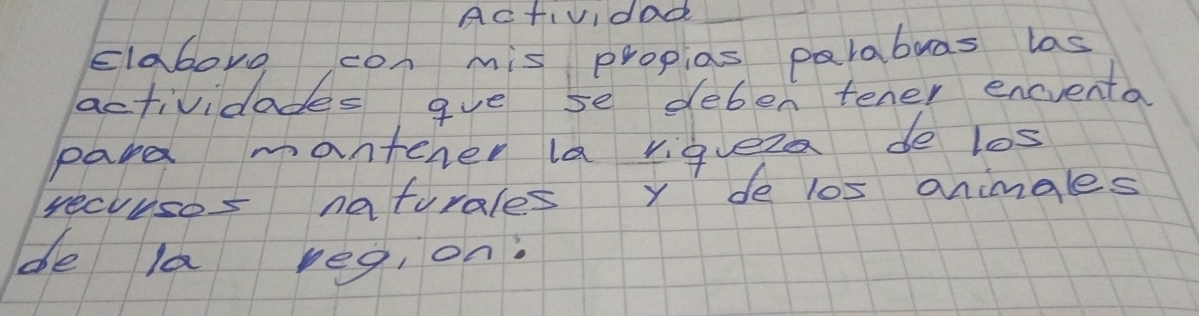 Actividad
Elaboro con mis propias palabras las
actividades que se deben tener encuenta
para mantener la riqueza de los
recursos naturales y de los animales
de la region.